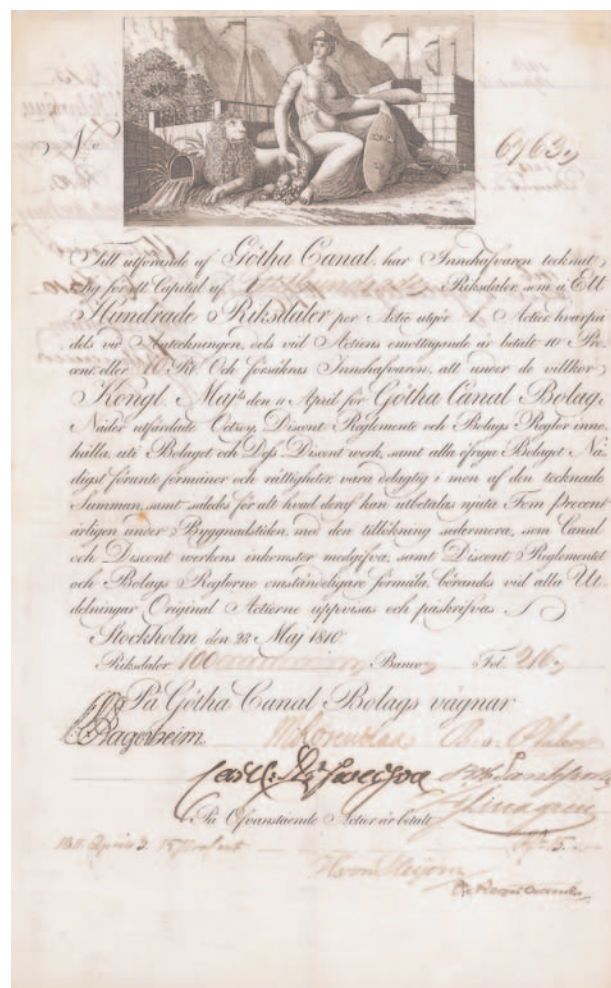 No 6763,
Till utförande af Götha Canal, har Innehafvaren tecknat
sig för ett Capital af Riksdaler, som a Ett
Hundrade Riksdaler per Actie utgör 1 Actier, hvarpå
dels vid Anteckningen, dels vid Actiens emottagande är betalt 10 Pro
cent, eller 10 Rd. Och försäkras Innehafvaren, att under de villkor,
Kongl. Majts den 11 April för Götha Canal Bolag, i
Nåder utfärdade Octroy, Discont Reglemente och Bolags Reglor inne
hålla, uti Bolaget och Dess Discont werk, samt alla öfriga Bolaget Nå
digst förunte förmåner och rättigheter, vara delagtig i mon af den tecknade
Summan, samt således för alt hvad deraf kan utbetalas njuta Fem Procent
årligen under Byggnadstiden, med den tillökning sedermera, som Canal
och Discont werkens inkomster medgifva, samt Discont Reglementet
och Bolags Reglorne omständeligare förmäla, börandes vid alla Ut
delningar Original Actierne uppvisas och påskrifvas
Stockholm den 23 Maj 1810
Riksdaler 100 Banco, Fol. 216,
På Götha Canal Bolags vägnar
Lagerheim
På Ofvanstående Actier är betalt
1811 April 2